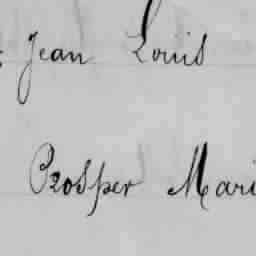 Jean Louis
Prosper Mari